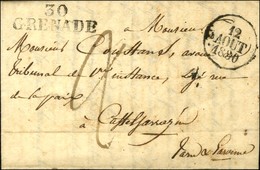 30
GRENADE
12
AOUT
1830
A Monsieur
Monsieur Constans, avoué
tribunal de 1ère instance, logé rue
de la paix
à Castelsarrazin